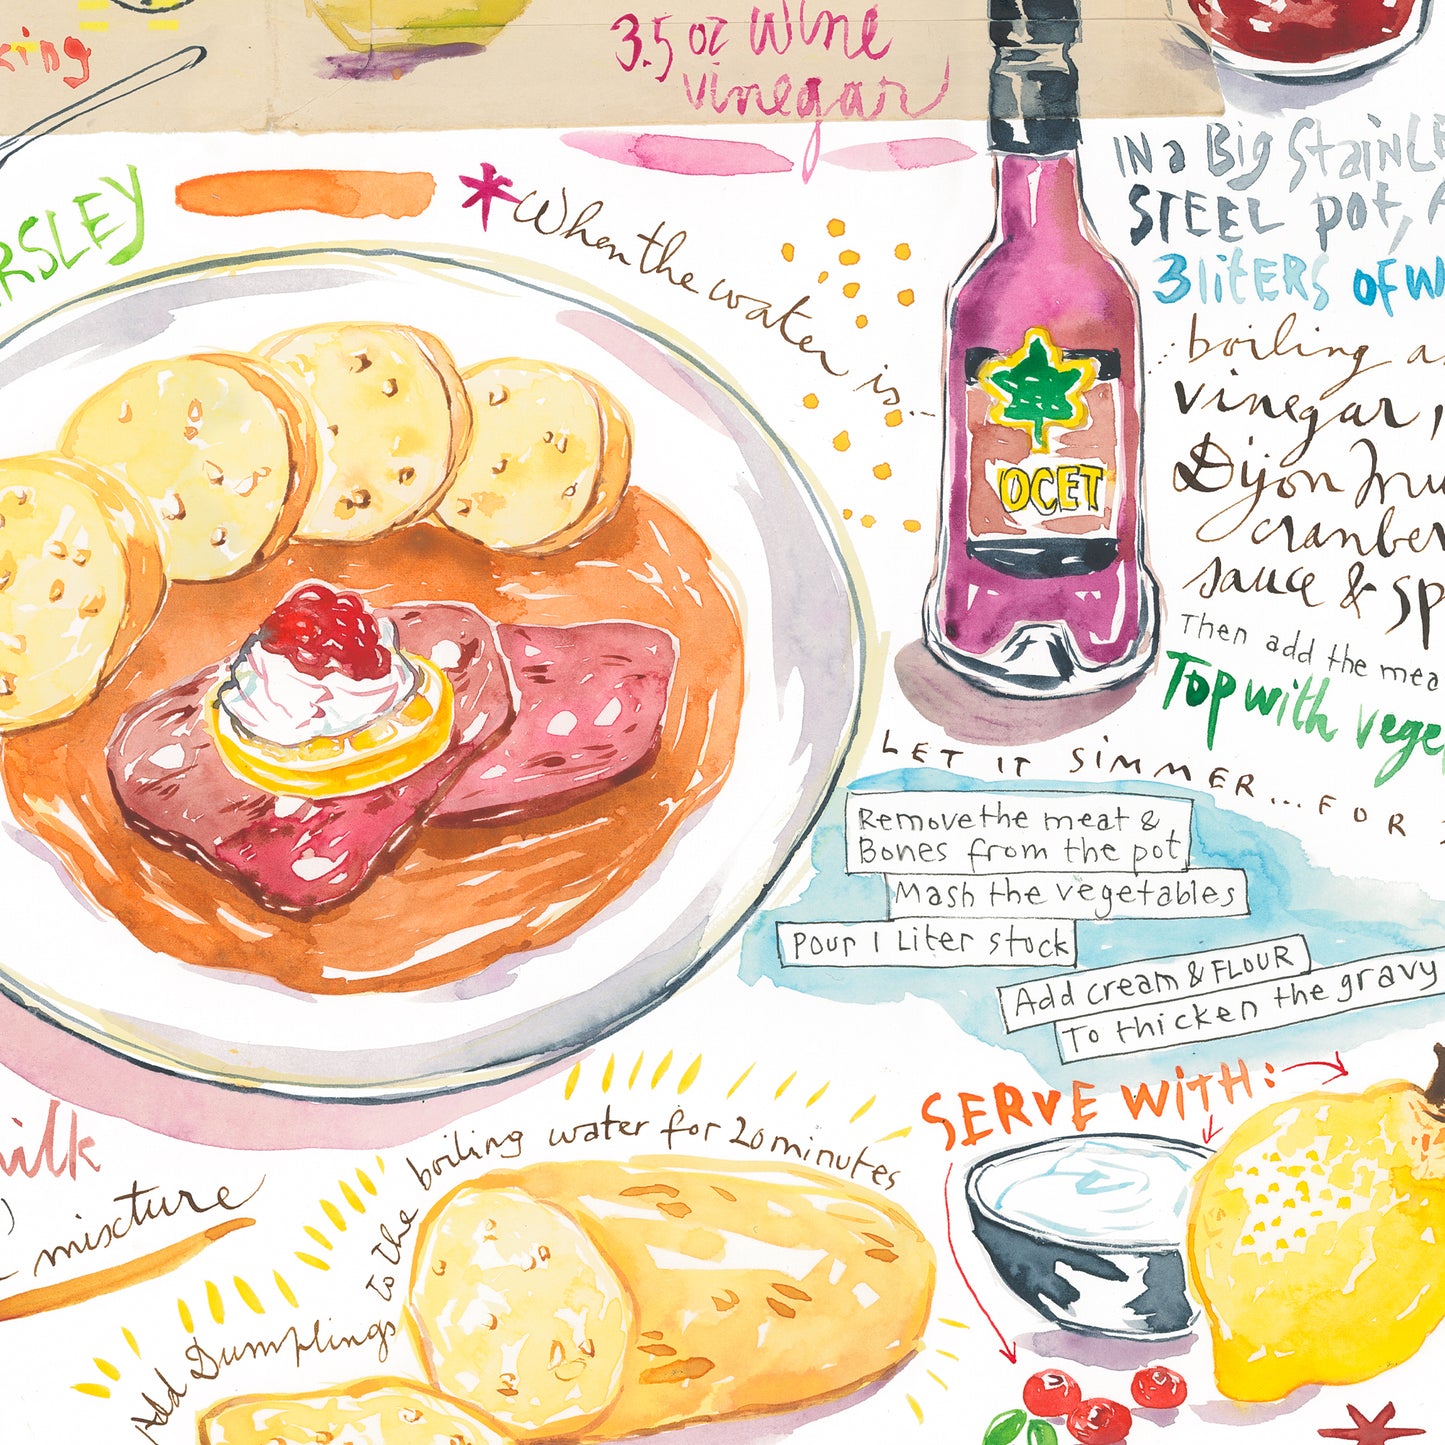 3.5 oz wine
vinegar
*When the water is...
OCET
IN a Big Stainl
STEEL pot,
3 liters of w
boiling a
vinegar,
Dijon mu
cranber
sauce & sp
Then add the mea
Top with vege
LET IT SIMMER...FOR
Remove the meat &
Bones from the pot
Mash the vegetables
Pour 1 Liter stock
Add cream & FLOUR
To thicken the gravy
SERVE WITH:
ilk
mixture
Add Dumplings to the boiling water for 20 minutes
king
RSLEY